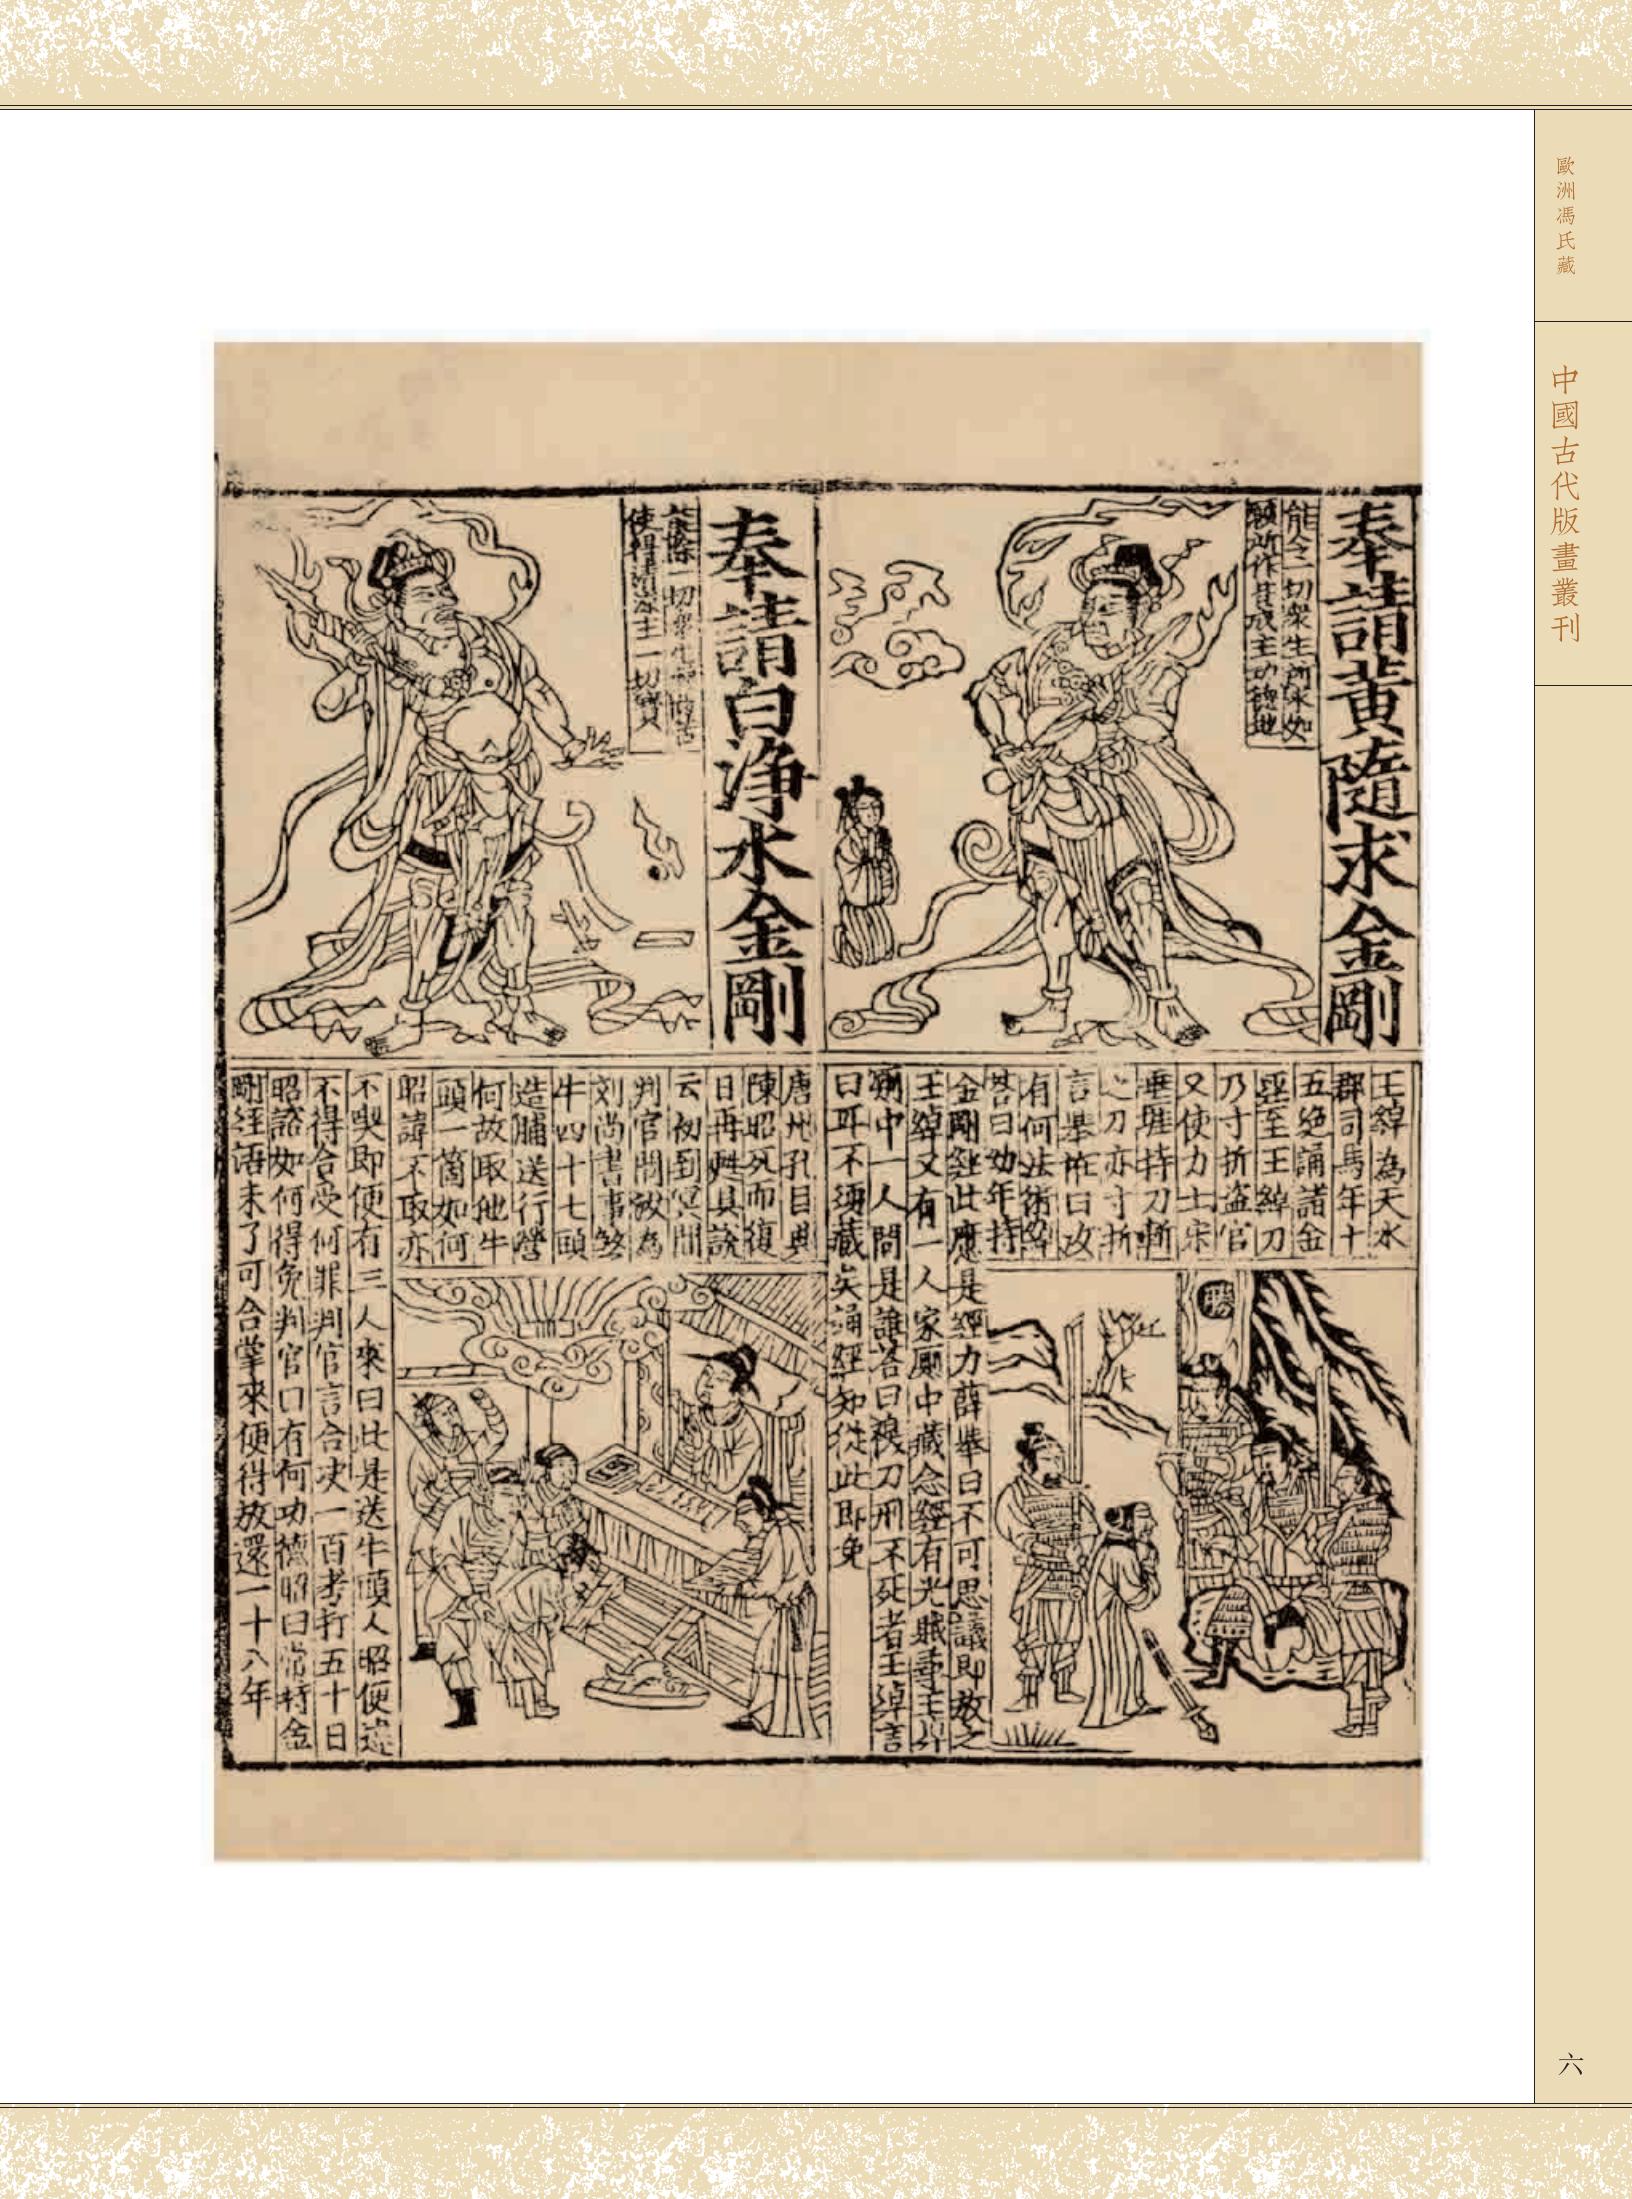 歐洲馮氏藏
中國古代版畫叢刊
六
奉請黃隨求金剛
能令一切衆生所求如
願所作皆成主功德也
王綽為天水
郡司馬年十
五絶誦諸金
經至王綽刀
乃寸折盗官
又使力士宋
垂陡持刀斬
之刀亦寸折
言舉怪曰汝
有何法術
答曰幼年持
金剛經此應是經力薛舉曰不可思議即放之
王綽又有一人家厠中藏念經有光賊尋王
厠中一人問是誰答曰被刀刑不死者王綽言
曰耳不須藏矣誦經知從此即免
勝
奉請白淨水金剛
能除一切衆生
使得清主一切寶
唐州孔目典
陳昭死而復
日再甦具說
云初到冥間
判官問汝為
刘尚書事煞
牛四十七頭
造脯送行營
何故取他牛
頭一箇如何
昭諱不取亦
不喫即便有三人來曰此是送牛頭人昭便
不得合受何罪判官言合决一百考打五十日
昭諮如何得免判官曰有何功德昭曰常持金
剛經语未了可合掌來便得放還一十八年